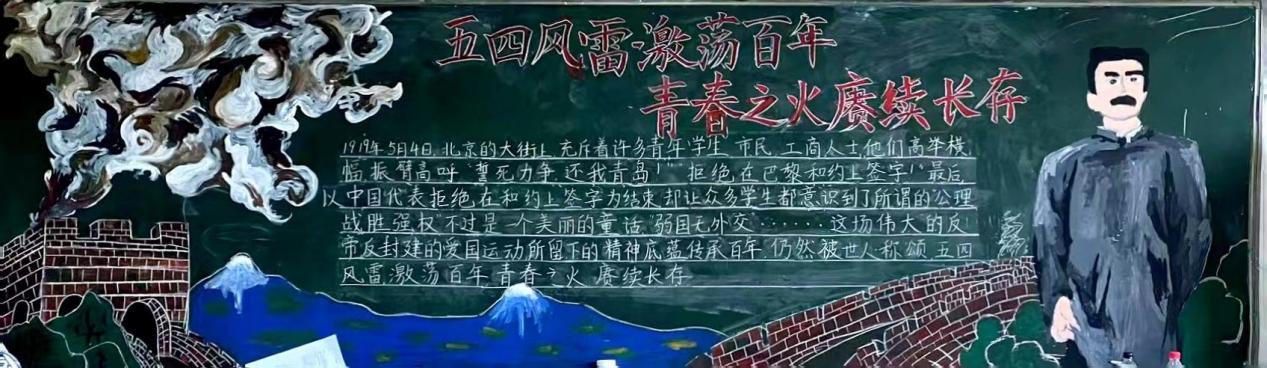 五四风雷激荡百年
青春之火赓续长存
1919年5月4日，北京的大街上，充斥着许多青年学生、市民、工商人士他们高举横
幅，振臂高呼“誓死力争，还我青岛！”“拒绝在巴黎和约上签字！”最后，
以中国代表拒绝在和约上签字为结束，却让众多学生都意识到了所谓的“公理
战胜强权”不过是一个美丽的童话，“弱国无外交”······这场伟大的反
帝反封建的爱国运动所留下的精神底蕴传承百年，仍然被世人称颂，五四
风雷，激荡百年，青春之火，赓续长存